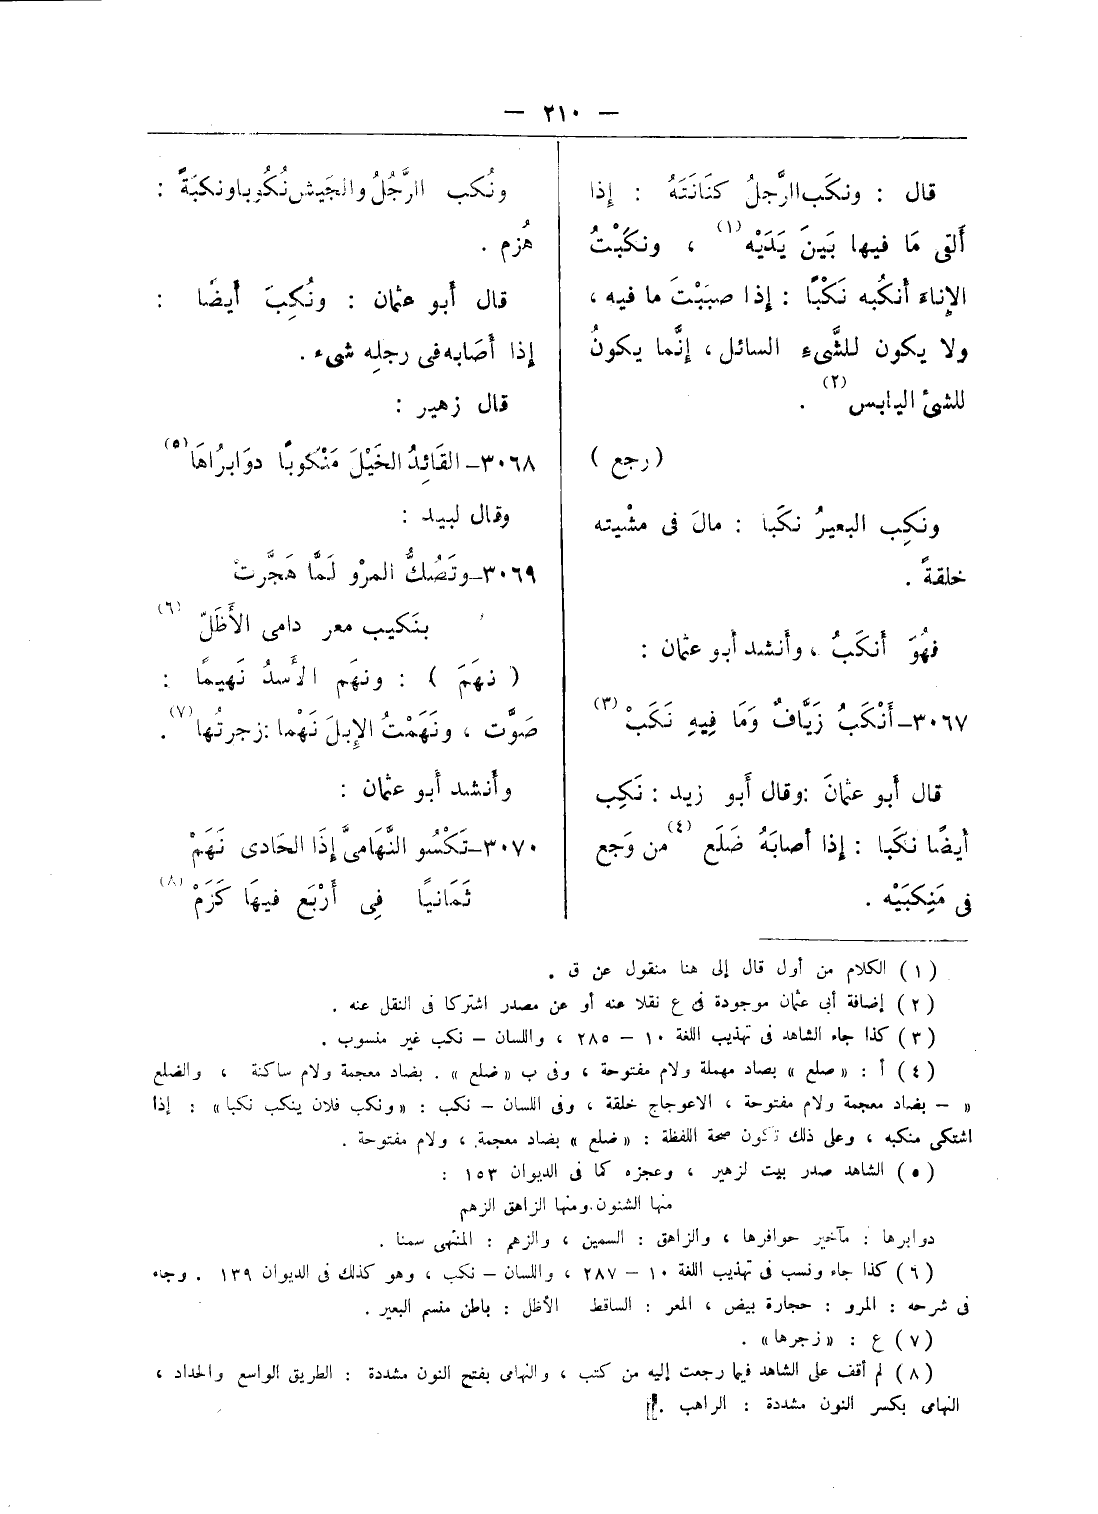 — ٢١٠ —
قال : ونكَب الرَّجلُ كنَانَتَهُ : إِذا
أَلقى مَا فيها بَينَ يَدَيْه (١) ، ونكَبْتُ
الإِناءَ أَنكُبه نَكْبًا : إِذا صبَبْتَ ما فيه ،
ولا يكون للشَّىءِ السائل ، إِنَّما يكونُ
للشئ اليابس (٢) .
( رجع )
ونَكِب البعيرُ نكَبا : مالَ فى مشْيته
خلقةً .
فهُوَ أَنكَبُ ، وأَنشد أَبو عثمان :
٣٠٦٧ – أَنْكَبُ زَيَّافٌ وَمَا فِيهِ نَكَبْ (٣)
قال أَبو عثمانَ : وقال أَبو زيد : نَكِب
أَيضًا نكَبا : إِذا أَصابَهُ ضَلَع (٤) من وَجَع
فى مَنكِبَيْه .
ونُكب الرَّجُلُ والجَيش نُكُوبا ونكبَةً :
هُزم .
قال أَبو عثمان : ونُكِبَ أَيضًا :
إِذا أَصَابه فى رجلِه شىء .
قال زهير :
٣٠٦٨ – القَائِدُ الخَيْلَ مَنْكوبًا دوَابرُاهَا (٥)
وقال لبيد :
٣٠٦٩ – وتَصُكُّ المرْو لَمَّا هَجَّرتْ
بنَكيب معر دامى الأَظَلّ (٦)
( نهَمَ ) : ونهَم الأَسدُ نَهيمًا :
صَوَّت ، ونَهَمْتُ الإِبلَ نَهْما : زجرتُها (٧) .
وأَنشد أَبو عثمان :
٣٠٧٠ – تَكْسُو النَّهامىَّ إِذَا الحَادى نَهَمْ
ثَمَانيًا فِى أَرْبَع فيهَا كَزَمْ (٨)
( ١ ) الكلام من أول قال إلى هنا منقول عن ق .
( ٢ ) إضافة أبى عثمان موجودة فى ع نقلا عنه أو عن مصدر اشتركا فى النقل عنه .
( ٣ ) كذا جاء الشاهد فى تهذيب اللغة ١٠ – ٢٨٥ ، واللسان – نكب غير منسوب .
( ٤ ) أ : « صلع » بصاد مهملة ولام مفتوحة ، وفى ب « ضلع » . بضاد معجمة ولام ساكنة ، والضلع
« – بضاد معجمة ولام مفتوحة ، الاعوجاج خلقة ، وفى اللسان – نكب : « ونكب فلان ينكب نكبا » : إذا
اشتكى منكبه ، وعلى ذلك تكون صحة اللفظة : « ضلع » بضاد معجمة ، ولام مفتوحة .
( ٥ ) الشاهد صدر بيت لزهير ، وعجزه كما فى الديوان ١٥٣ :
منها الشنون ومنها الزاهق الزهم
دوابرها : مآخير حوافرها ، والزاهق : السمين ، والزهم : المنتهى سمنا .
( ٦ ) كذا جاء ونسب فى تهذيب اللغة ١٠ – ٢٨٧ ، واللسان – نكب ، وهو كذلك فى الديوان ١٣٩ . وجاء
فى شرحه : المرو : حجارة بيض ، المعر : الساقط الأظل : باطن منسم البعير .
( ٧ ) ع : « زجرها » .
( ٨ ) لم أقف على الشاهد فيما رجعت إليه من كتب ، والنهامى بفتح النون مشددة : الطريق الواسع والحداد ،
النهامى بكسر النون مشددة : الراهب .